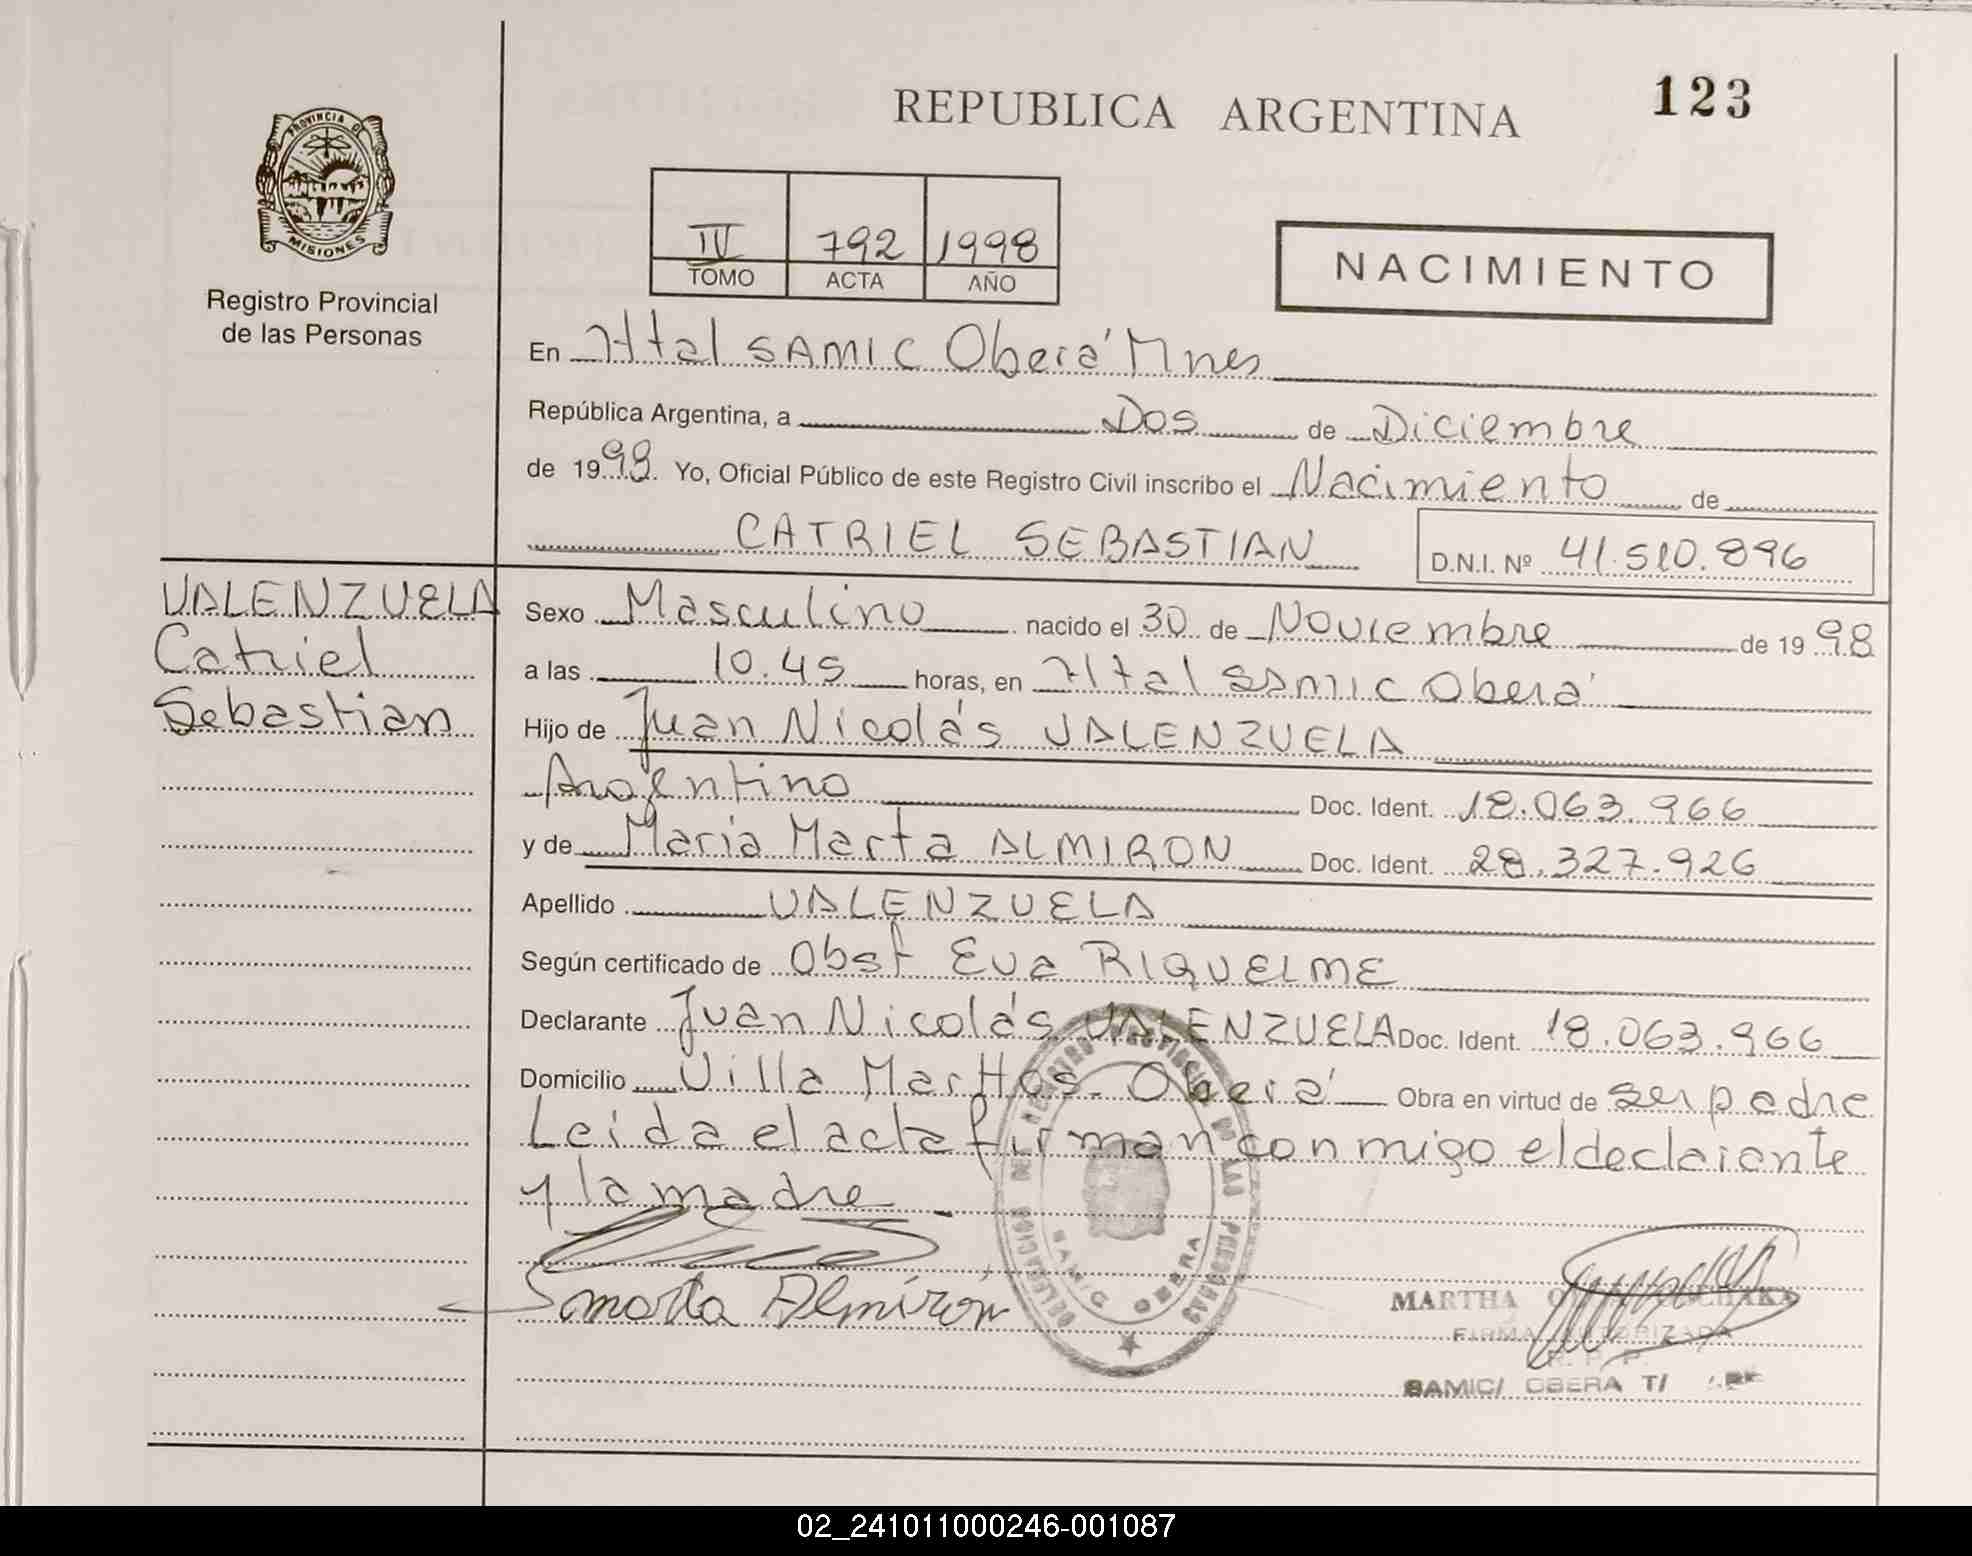 REPUBLICA ARGENTINA
123
PROVINCIA DE
MISIONES
Registro Provincial
de las Personas
IV 792 1998
TOMO ACTA AÑO
NACIMIENTO
En Httal SAMIC Oberá Mnes
República Argentina, a Dos de Diciembre
de 1998. Yo, Oficial Público de este Registro Civil inscribo el Nacimiento de
CATRIEL SEBASTIAN D.N.I. Nº 41.510.896
VALENZUELA
Catriel
Sebastian
Sexo Masculino nacido el 30 de Noviembre de 1998
a las 10.45 horas, en Httal SAMIC Oberá
Hijo de Juan Nicolás VALENZUELA
Argentino Doc. Ident. 18.063.966
y de Maria Marta ALMIRON Doc. Ident. 28.327.926
Apellido VALENZUELA
Según certificado de Obst Eva RIQUELME
Declarante Juan Nicolás VALENZUELA Doc. Ident. 18.063.966
Domicilio Villa Martos - Oberá Obra en virtud de ser padre
Leida el acta firman conmigo el declarante
y la madre
Marta Almirón
DELEGACION DEL REGISTRO PROVINCIAL DE LAS PERSONAS
SAMIC OBERA
MARTHA
FIRMA AUTORIZADA
R. P. P.
SAMIC/ OBERA T/
02_241011000246-001087